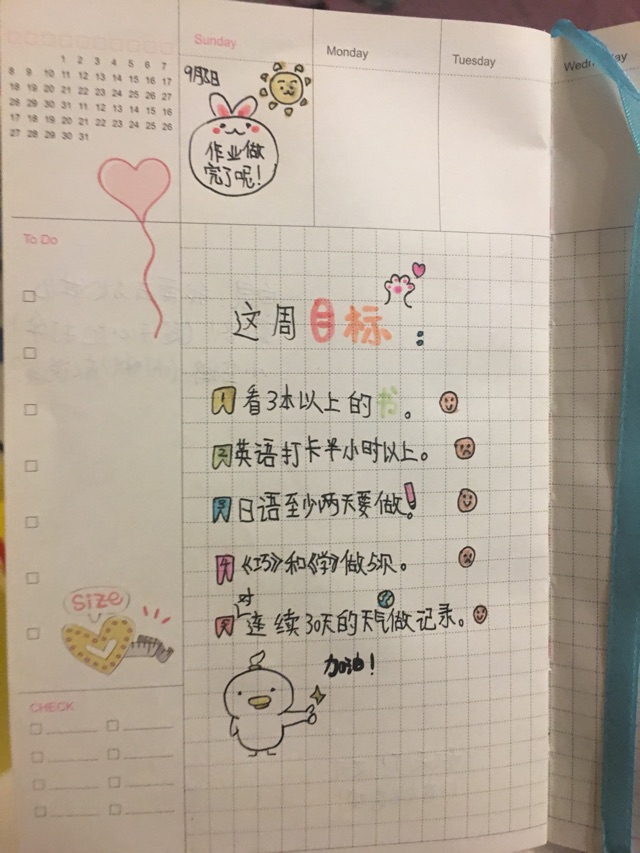 Sunday
Monday
Tuesday
1 2 3 4 5 6 7
8 9 10 11 12 13 14 15 16 17
18 19 20 21 22 23 24 25 26 27
28 29 30 31 11 12 13 14 15 16
17 18 19 20 21 22 23 24 25 26
27 28 29 30 31
作业做
完了呢！
To Do
这周目标：
1 看3本以上的书。
2 英语打卡半小时以上。
3 日语至少两天要做！
4 《巧》和《学》做5张。
5 对连续30天的天气做记录。
size
加油！
CHECK